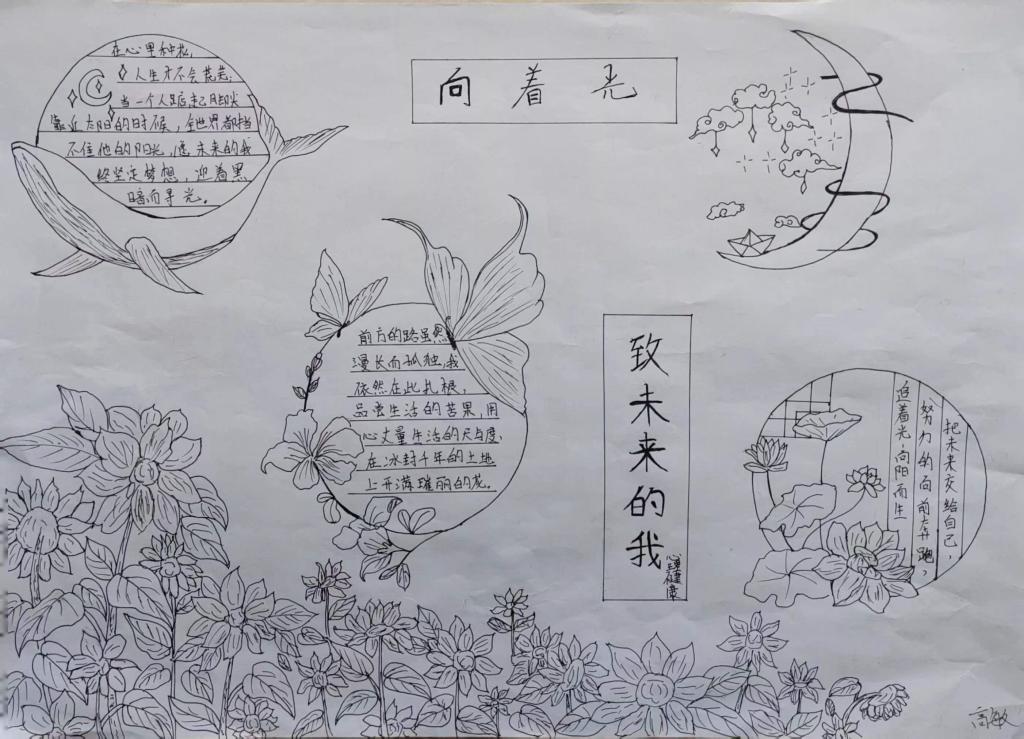 在心里种花，
人生才不会荒芜；
当一个人踮起脚尖
靠近太阳的时候，全世界都挡
不住他的阳光，愿未来的我
终坚定梦想，迎着黑
暗而寻光。
向着光
前方的路虽然
漫长而孤独，我
依然在此扎根，
品尝生活的苦果，用
心丈量生活的尺与度，
在冰封千年的土地
上开满璀丽的花。
致未来的我
心理健康
把未来交给自己，
努力的向前奔跑，
追着光，向阳而生
高敏